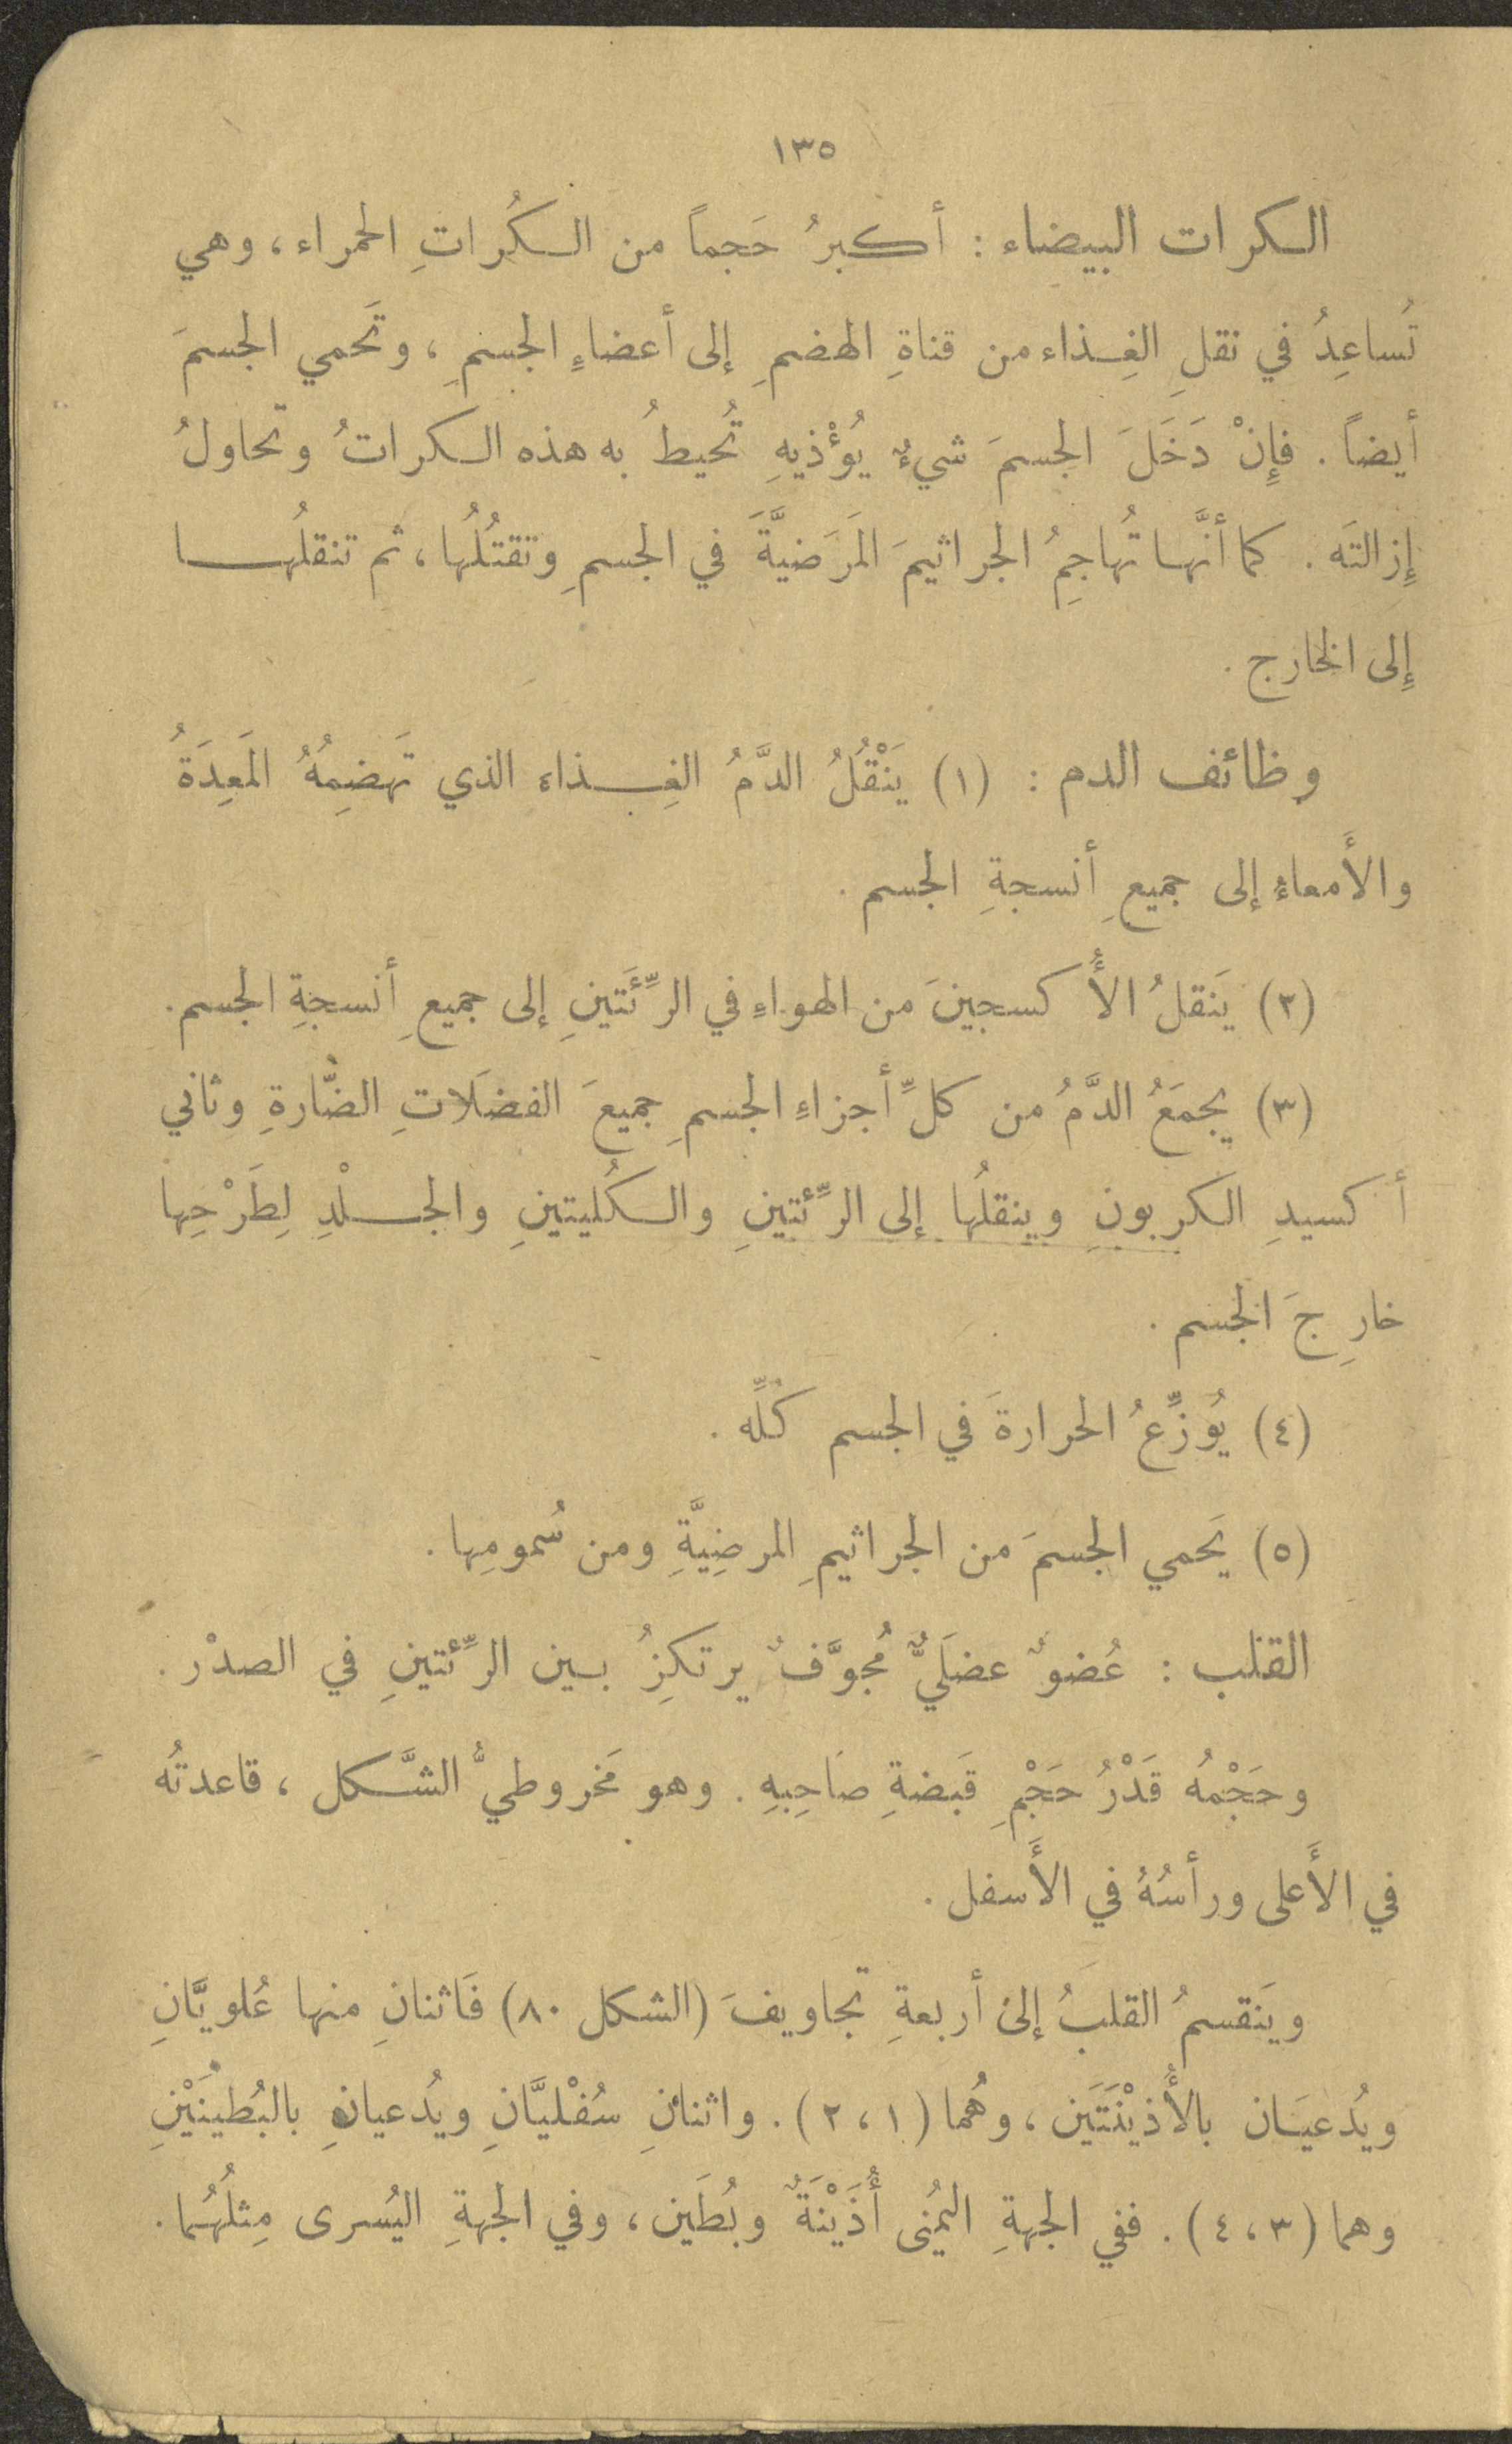 ١٣٥
الكرات البيضاء : أكبرُ حَجماً من الكُراتِ الحمراء ، وهي
تُساعِدُ في نقلِ الغِذاء من قناةِ الهضمِ إلى أعضاءِ الجسمِ ، وتَحمي الجسمَ
أيضاً . فإِنْ دَخَلَ الجسمَ شيءٌ يُؤْذيهِ تُحيطُ به هذه الكراتُ وتحاولُ
إِزالتَه . كما أنَّها تُهاجِمُ الجراثيمَ المَرَضيَّةَ في الجسمِ وتقتُلُها ، ثم تنقلُها
إِلى الخارج .
وظائف الدم : (١) يَنْقُلُ الدَّمُ الغِذاء الذي تَهضِمُهُ المَعِدَةُ
والأَمعاءُ إلى جميعِ أنسجةِ الجسم .
(٢) يَنقلُ الأُكسجينَ من الهواءِ في الرِّئَتينِ إلى جميعِ أنسجةِ الجسم .
(٣) يجمَعُ الدَّمُ من كلِّ أجزاءِ الجسمِ جميعَ الفضَلاتِ الضّارةِ وثاني
أكسيدِ الكربونِ وينقلُها إلى الرِّئتينِ والكُليتينِ والجلْدِ لِطَرْحِها
خارِجَ الجسم .
(٤) يُوزِّعُ الحرارةَ في الجسم كُلِّه .
(٥) يَحمي الجسمَ من الجراثيمِ المرضِيَّةِ ومن سُمومِها .
القلب : عُضوٌ عضَليٌّ مُجوَّفٌ يرتكِزُ بين الرِّئتينِ في الصدْر .
وحَجْمُه قَدْرُ حَجْمِ قَبضةِ صاَحِبهِ . وهو مَخروطيُّ الشَّكل ، قاعدتُه
في الأَعلى ورأسُهُ في الأَسفل .
ويَنقسمُ القلبُ إلى أربعةِ تجاويفَ (الشكل ٨٠) فَاثنانِ منها عُلويَّانِ
ويُدعيَان بالأُذيْنَتَين ، وهُما (١ ، ٢) . واثنانِ سُفْليَّانِ ويُدعيانِ بالبُطيْنَيْنِ
وهما (٣ ، ٤) . ففي الجهةِ اليُمنى أُذَيْنَةٌ وبُطَين ، وفي الجهةِ اليُسرى مِثلُهُما .